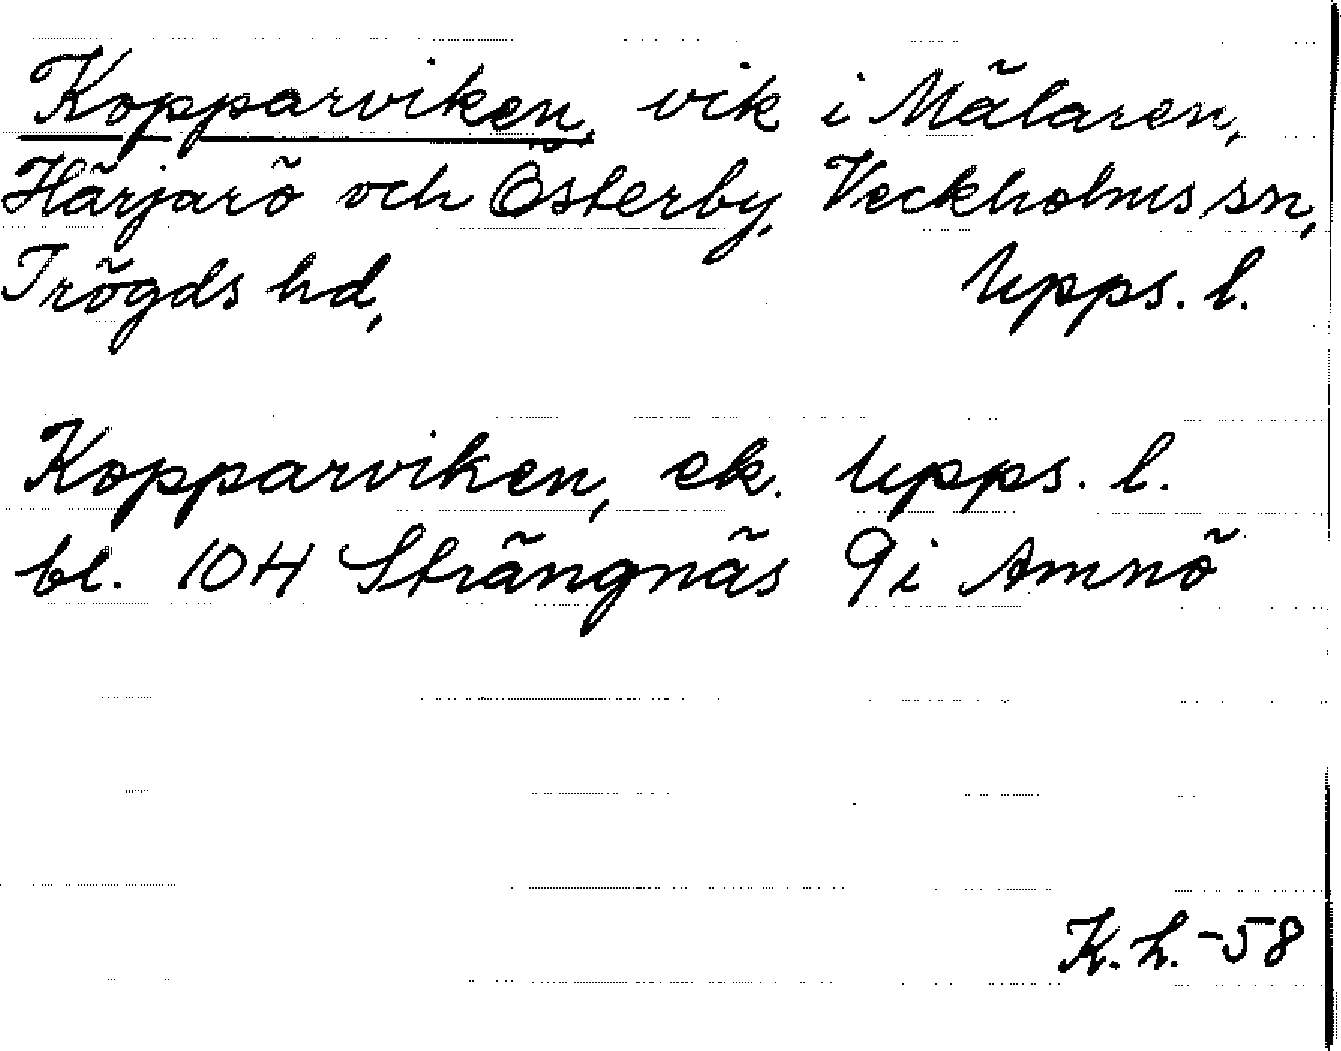 Kopparviken, vik i Mälaren,
Härjarö och Österby, Veckholms sn,
Trögds hd, Upps. l.
Kopparviken, ek. Upps. l.
bl. 10H Strängnäs 9i Amnö
K.L.-58